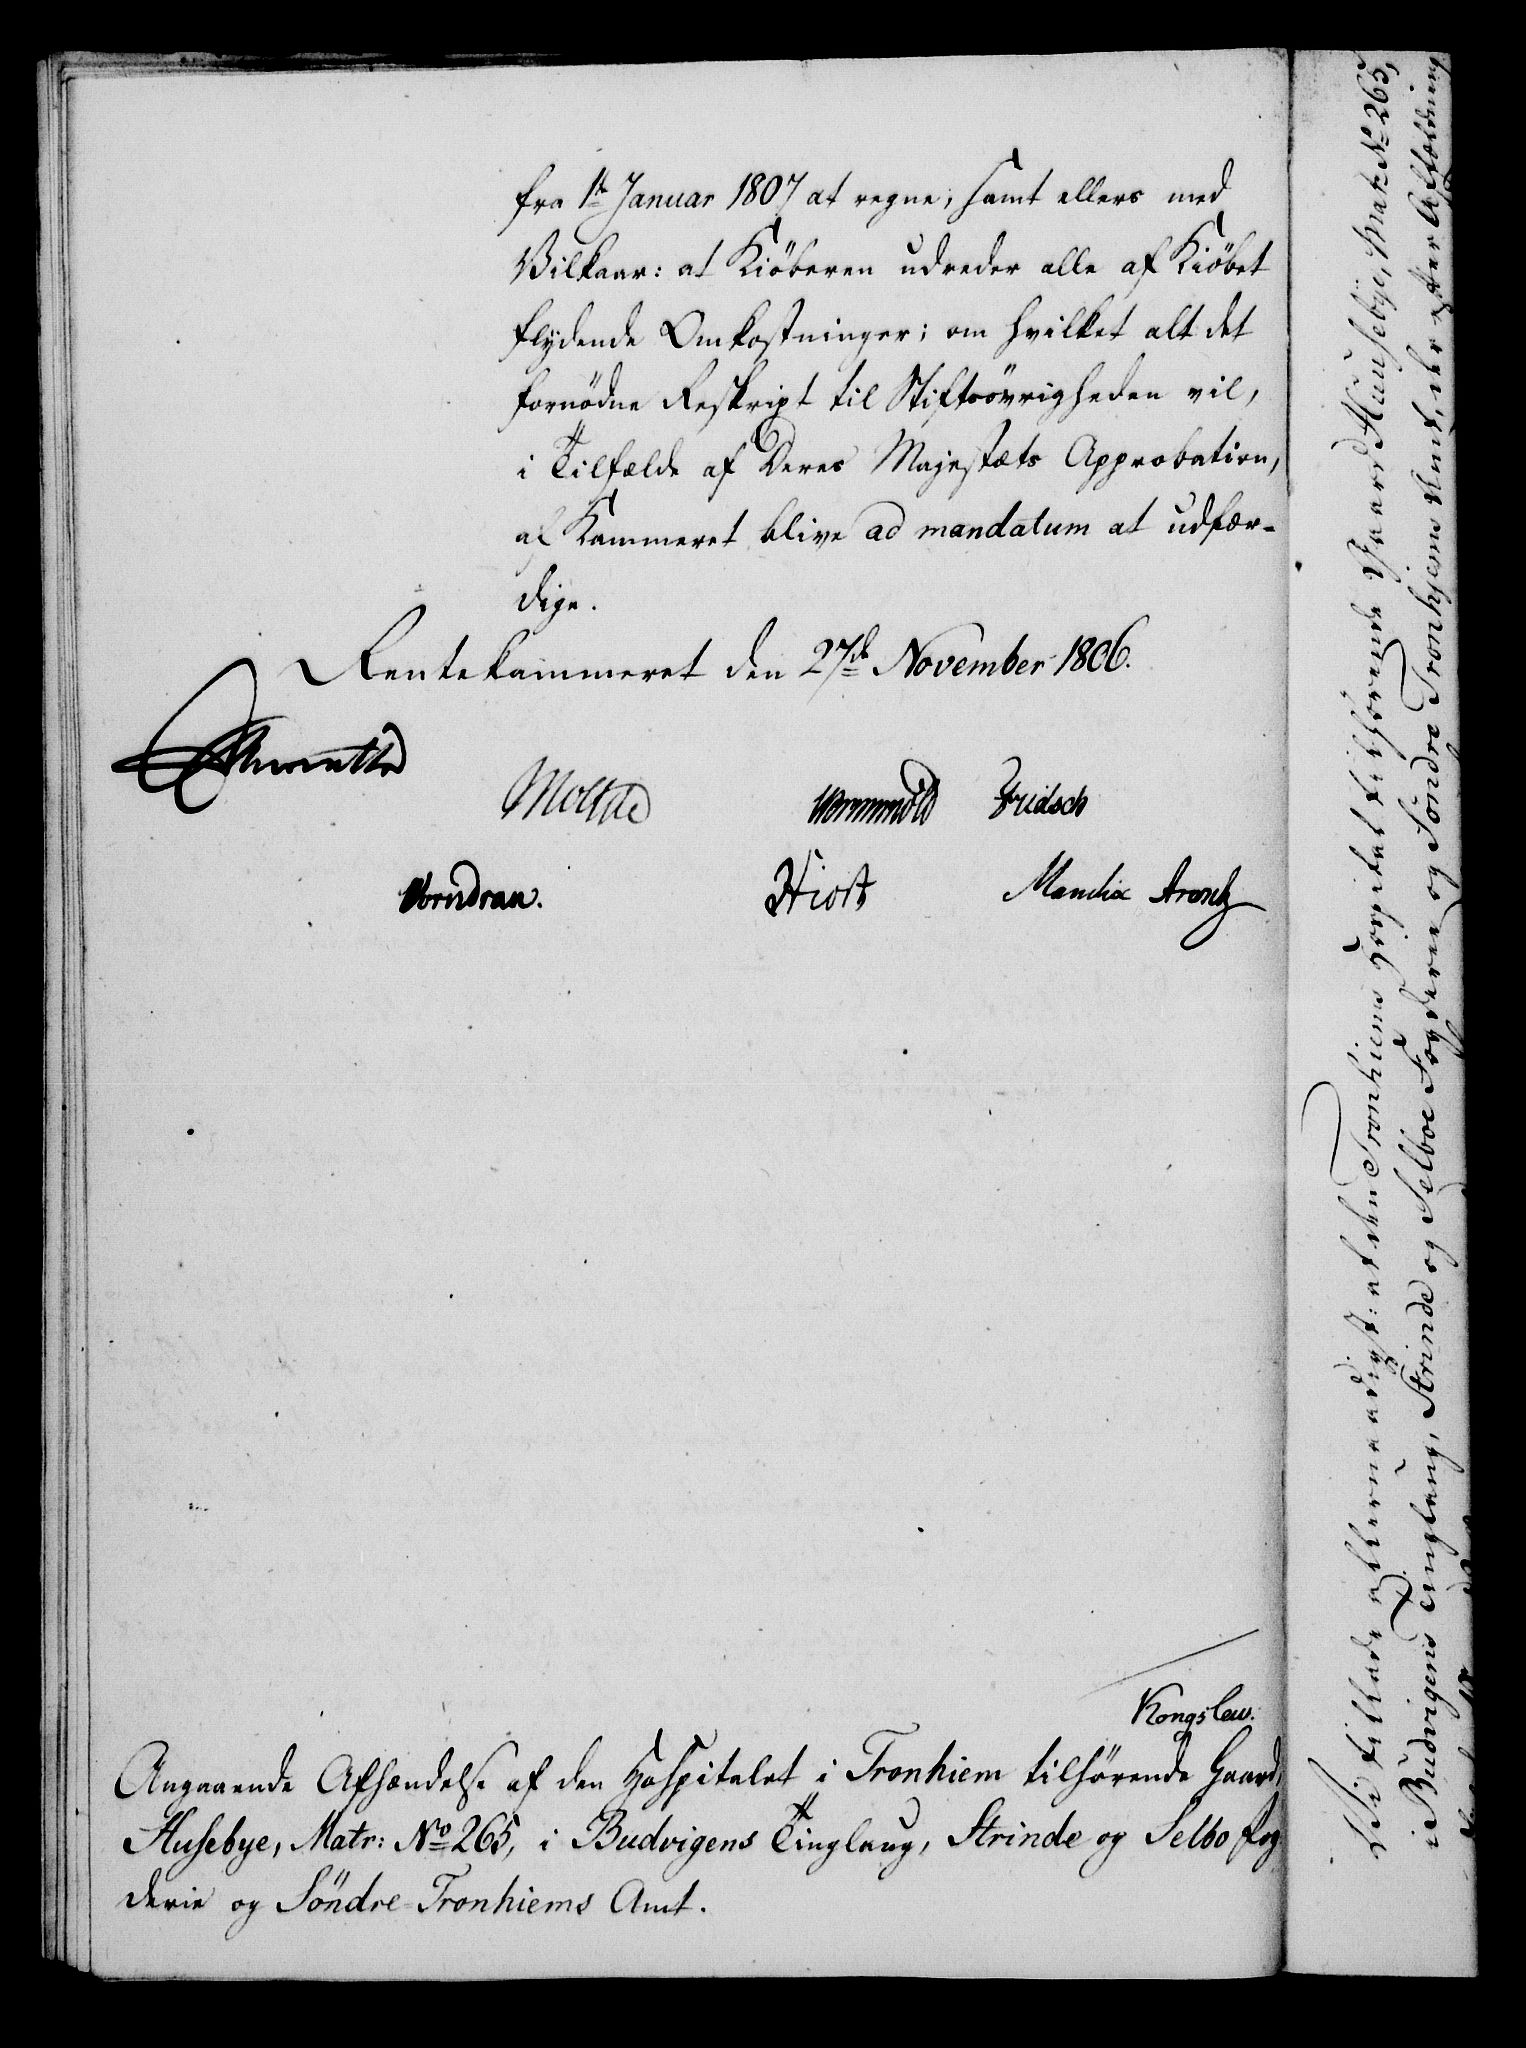 fra 1te Januar 1807 at regne; samt ellers med
Vilkaar: at Kiöberen udreder alle af Kiöbet
flydende Omkostninger; om hvilket alt det
fornödne Reskript til Stiftsövrigheden vil,
i Tilfælde af Deres Majestæts Approbation,
af Kammeret blive ad mandatum at udfær-
dige.
Rentekammeret den 27de November 1806.
Moltke Wormskiold Fridsch
Vorndran. Hiort Mandix Arentz
Kongslew.
Angaaende Afhændelse af den Hospitalet i Tronhiem tilhörende Gaard,
Husebye, Matr: No 265, i Budvigens Tinglaug, Strinde og Selbo Fog
derie og Söndre-Tronhiems Amt.
Vi tillade allernaadigst: at den Tronhiems Hospital tilhörende Gaard Huusebye, Matr No 265,
i Budvigens Tinglaug, Strinde og Selboe Fogderie og Söndre Tronhjems Amt, der efter Affældning